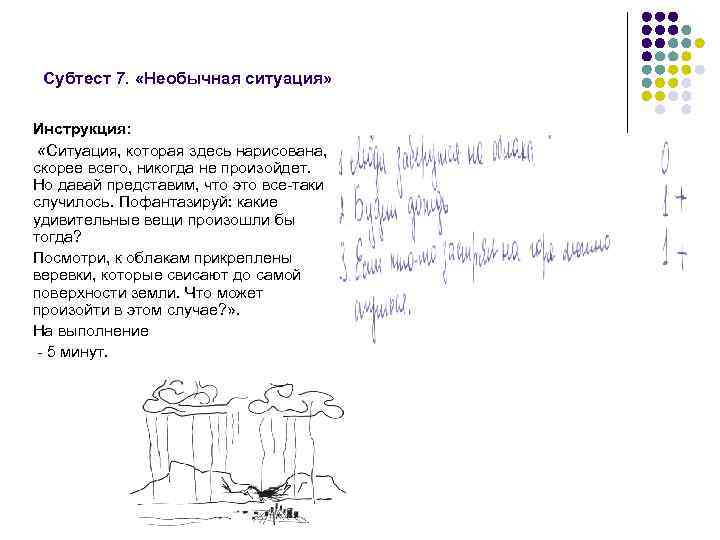 Субтест 7. «Необычная ситуация»
Инструкция:
«Ситуация, которая здесь нарисована,
скорее всего, никогда не произойдет.
Но давай представим, что это все-таки
случилось. Пофантазируй: какие
удивительные вещи произошли бы
тогда?
Посмотри, к облакам прикреплены
веревки, которые свисают до самой
поверхности земли. Что может
произойти в этом случае?» .
На выполнение
- 5 минут.
1 Люди заберутся на облака. 0
2 Будет дождь 1+
3. Если кто-то застрял на горе можно 1+